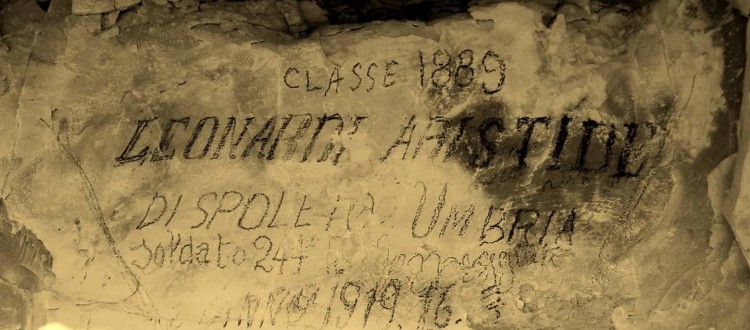 CLASSE 1889
LEONARDI ARISTIDE
DI SPOLETO UMBRIA
Soldato 24
ANNO 1919 16.